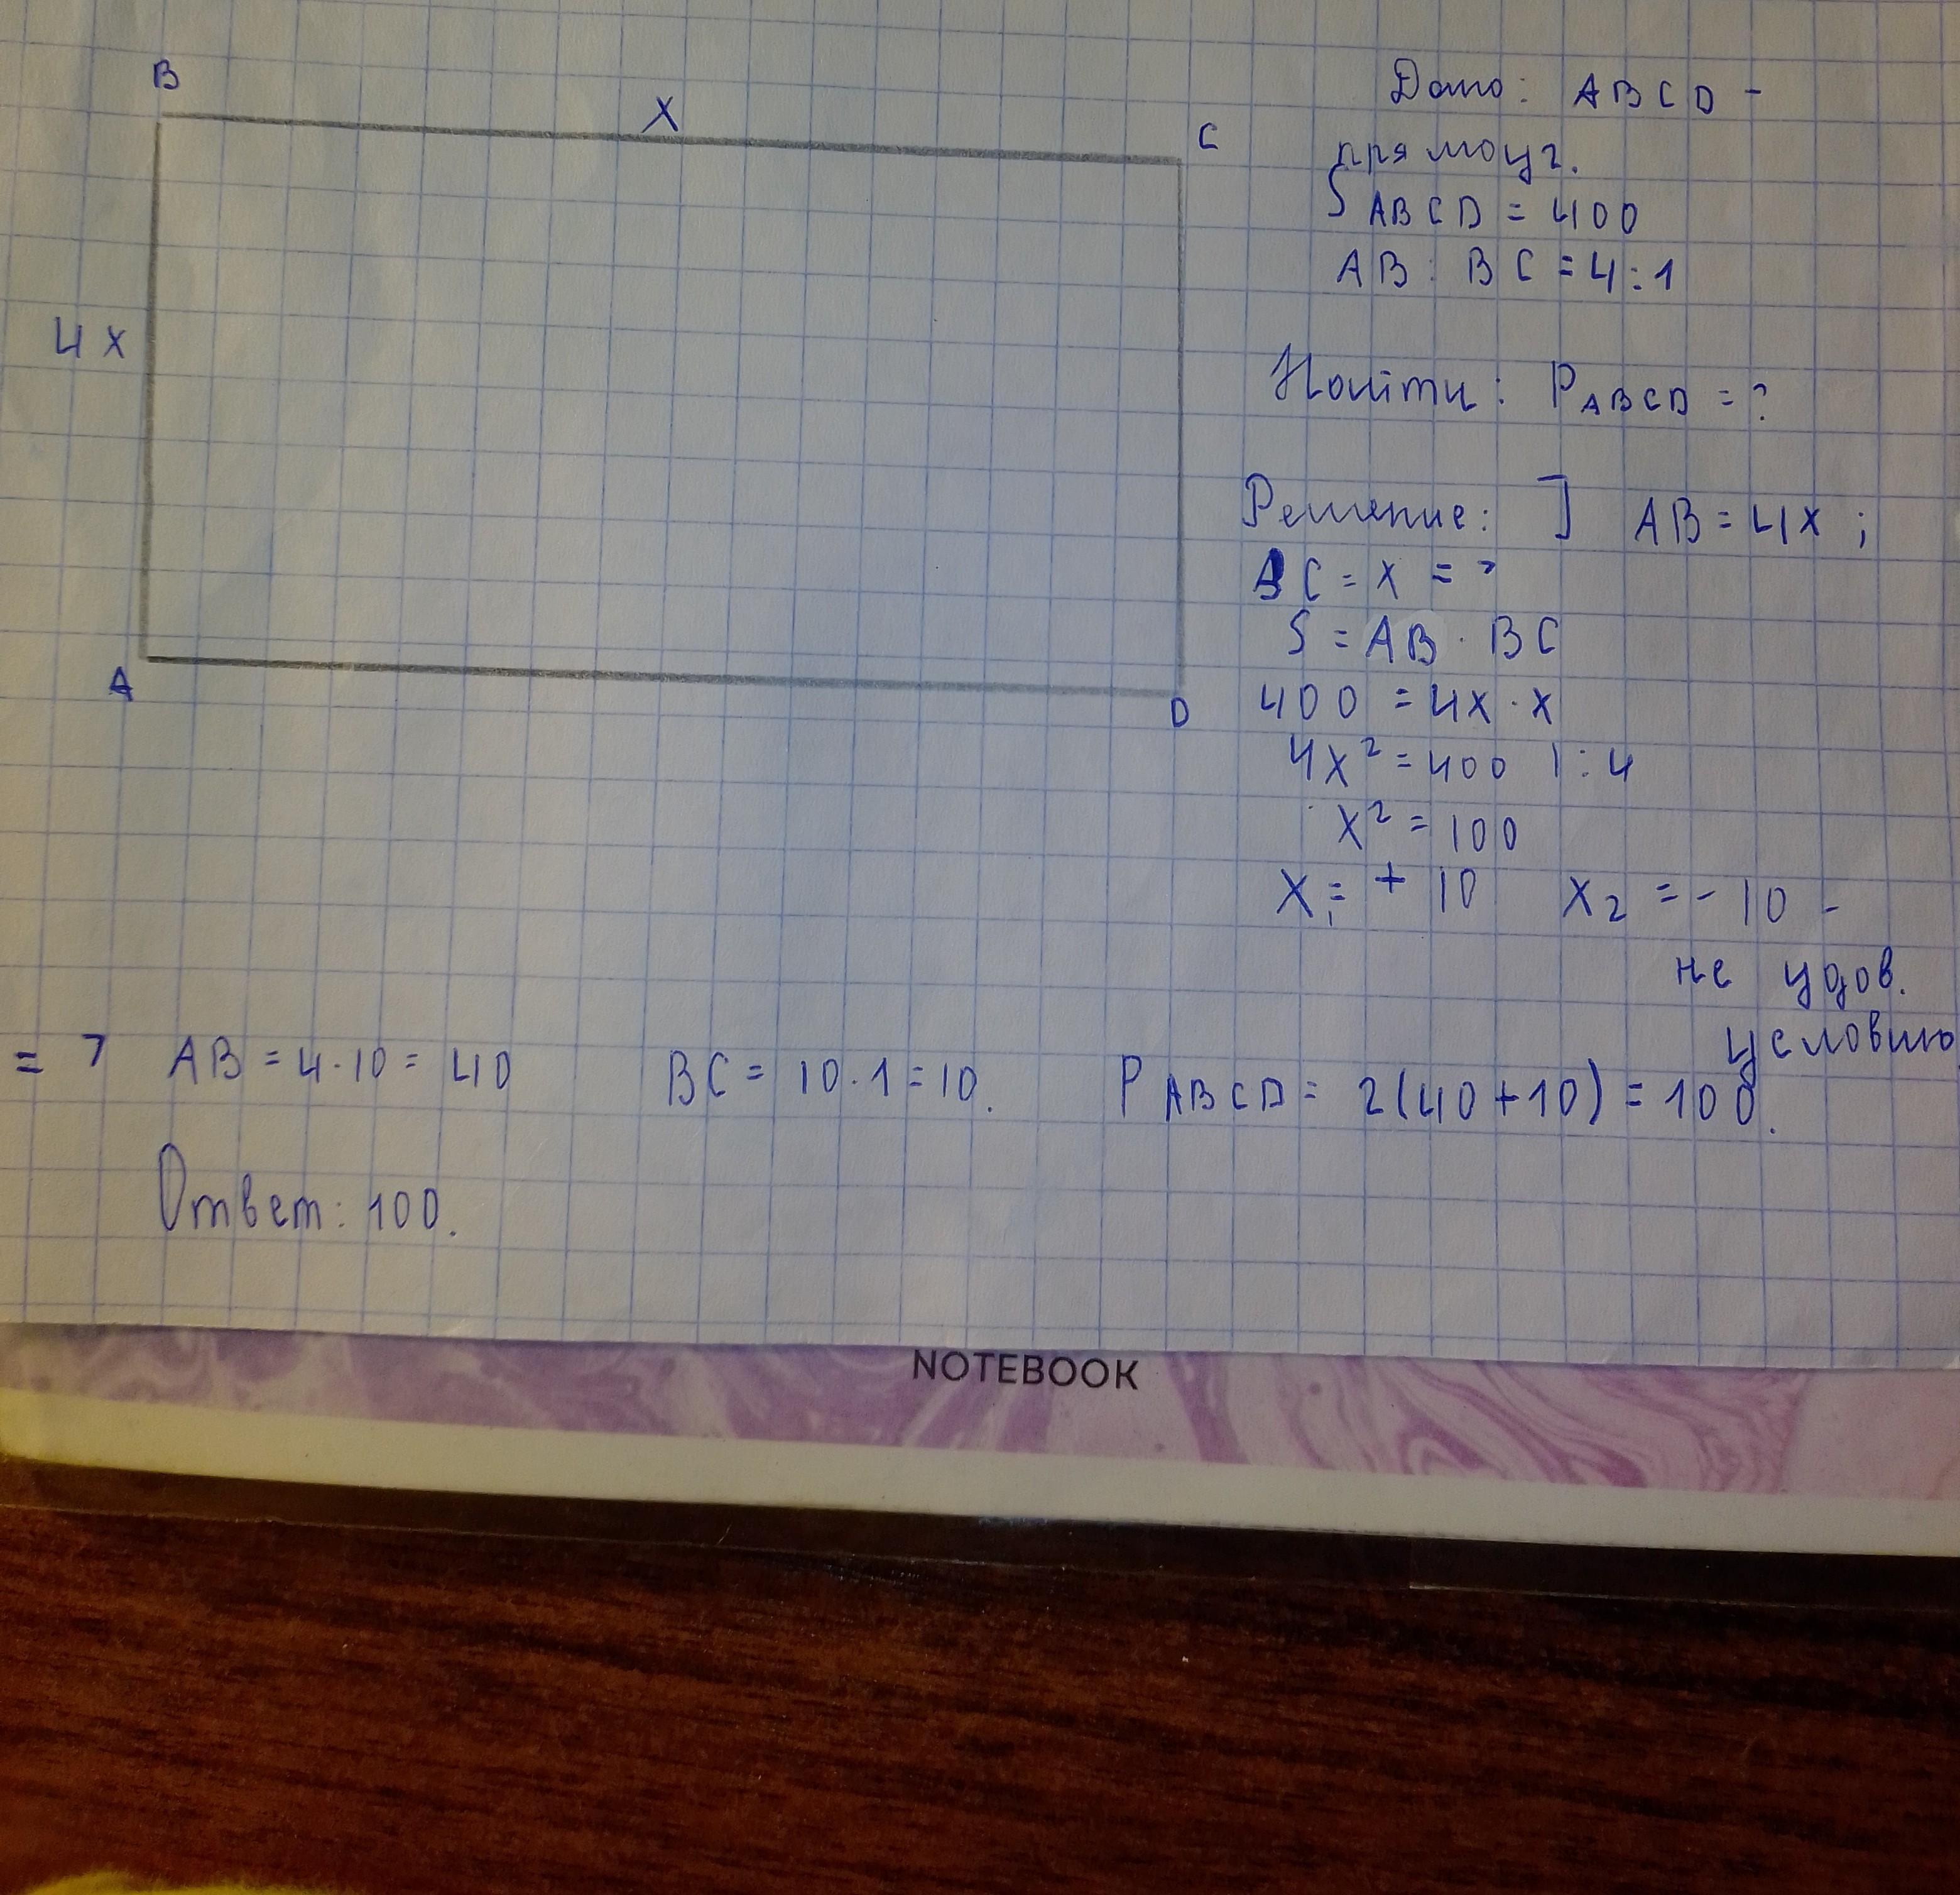 B
X
C
4x
A
D
Дано: ABCD -
прямоуг.
S ABCD = 400
AB : BC = 4 : 1
Найти: P ABCD = ?
Решение: ] AB = 4x ;
BC = x = >
S = AB · BC
400 = 4x · x
4x² = 400 | : 4
x² = 100
X₁ = + 10 X₂ = - 10 -
не удов.
условию
= > AB = 4 · 10 = 40 BC = 10 · 1 = 10. P ABCD = 2(40 + 10) = 100.
Ответ: 100.
NOTEBOOK